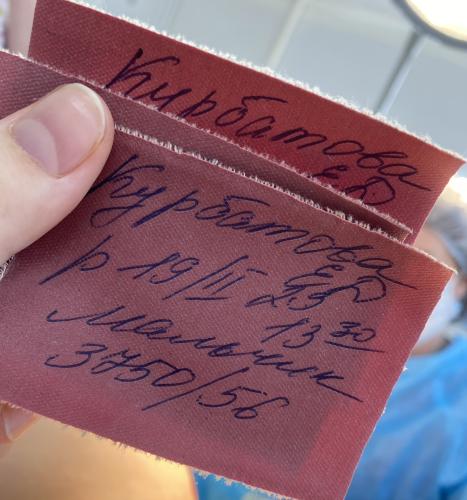 Курбатова
Е Р
Курбатова
Е Р
р 19/II 23
13 30
мальчик
3750/56